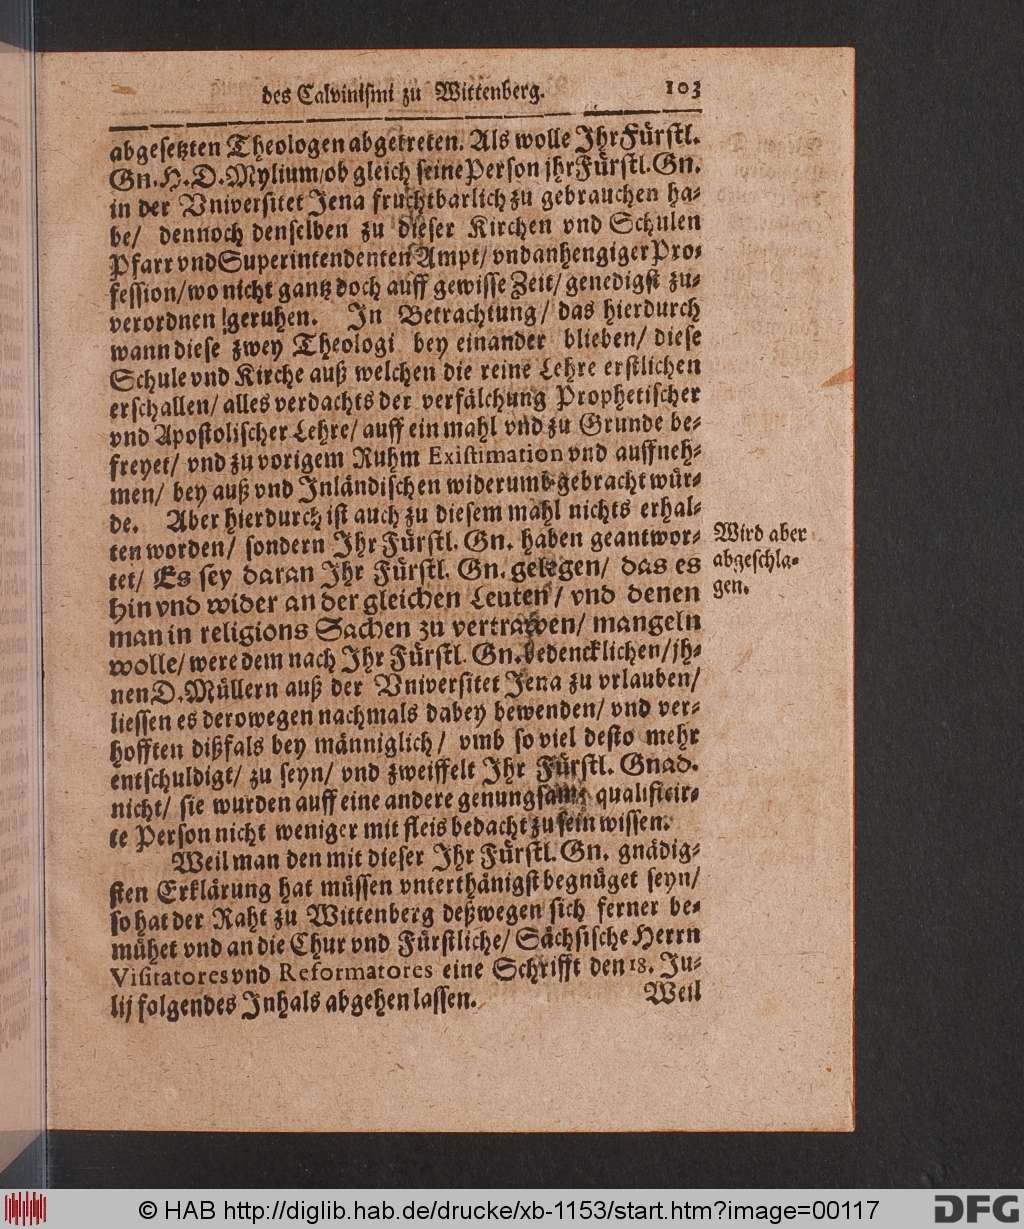 des Calvinismi zu Wittenberg. 103
abgesetzten Theologen abgetreten. Als wolle Ihr Fürstl.
Gn. H. D. Mylium/ob gleich seine Person jhr Fürstl. Gn.
in der Vniversitet Jena fruchtbarlich zu gebrauchen ha-
be/ dennoch denselben zu dieser Kirchen vnd Schulen
Pfarr vnd Superintendenten Ampt/ vnd anhengiger Pro-
fession/wo nicht gantz doch auff gewisse Zeit/ genedigst zu-
verordnen geruhen. In Betrachtung/ das hierdurch
wann diese zwey Theologi bey einander blieben/ diese
Schule vnd Kirche auß welchen die reine Lehre erstlichen
erschallen/ alles verdachts der verfälchung Prophetischer
vnd Apostolischer Lehre/ auff ein mahl vnd zu Grunde be-
freyet/ vnd zu vorigem Ruhm Existimation vnd auffneh-
men/ bey auß vnd Inländischen widerumb gebracht wür-
de. Aber hierdurch ist auch zu diesem mahl nichts erhal-
ten worden/ sondern Ihr Fürstl. Gn. haben geantwor-
tet/ Es sey daran Ihr Fürstl. Gn. gelegen/ das es
hin vnd wider an der gleichen Leuten/ vnd denen
man in religions Sachen zu vertrawen/ mangeln
wolle/ were dem nach Ihr Fürstl. Gn. bedencklichen/ jh-
nen D. Müllern auß der Vniversitet Jena zu vrlauben/
liessen es derowegen nachmals dabey bewenden/ vnd ver-
hofften dißfals bey männiglich/ vmb so viel desto mehr
entschuldigt/ zu seyn/ vnd zweiffelt Ihr Fürstl. Gnad.
nicht/ sie wurden auff eine andere genungsame qualificir-
te Person nicht weniger mit fleis bedacht zu sein wissen.
Weil man den mit dieser Ihr Fürstl. Gn. gnädig-
sten Erklärung hat müssen vnterthänigst begnüget seyn/
so hat der Raht zu Wittenberg deßwegen sich ferner be-
mühet vnd an die Chur vnd Fürstliche/ Sächsische Herrn
Visitatores vnd Reformatores eine Schrifft den 18. Ju-
lij folgendes Inhals abgehen lassen.
Weil
Wird aber
abgeschla-
gen.
© HAB http://diglib.hab.de/drucke/xb-1153/start.htm?image=00117
DFG